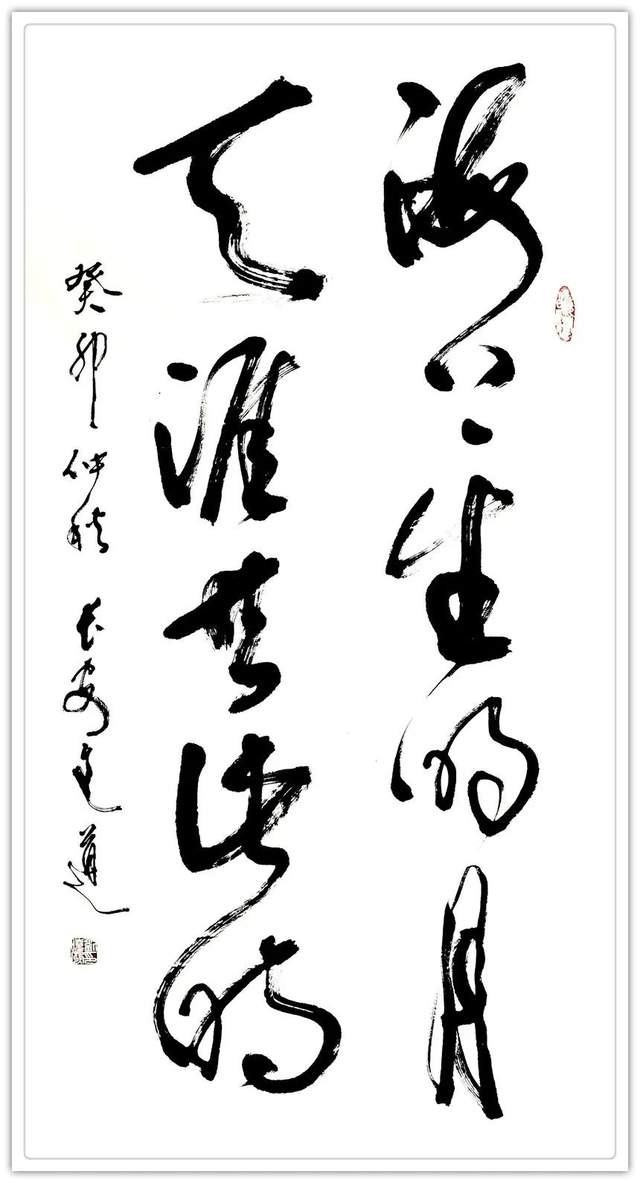 海上生明月
天涯共此时
癸卯仲秋 长安道